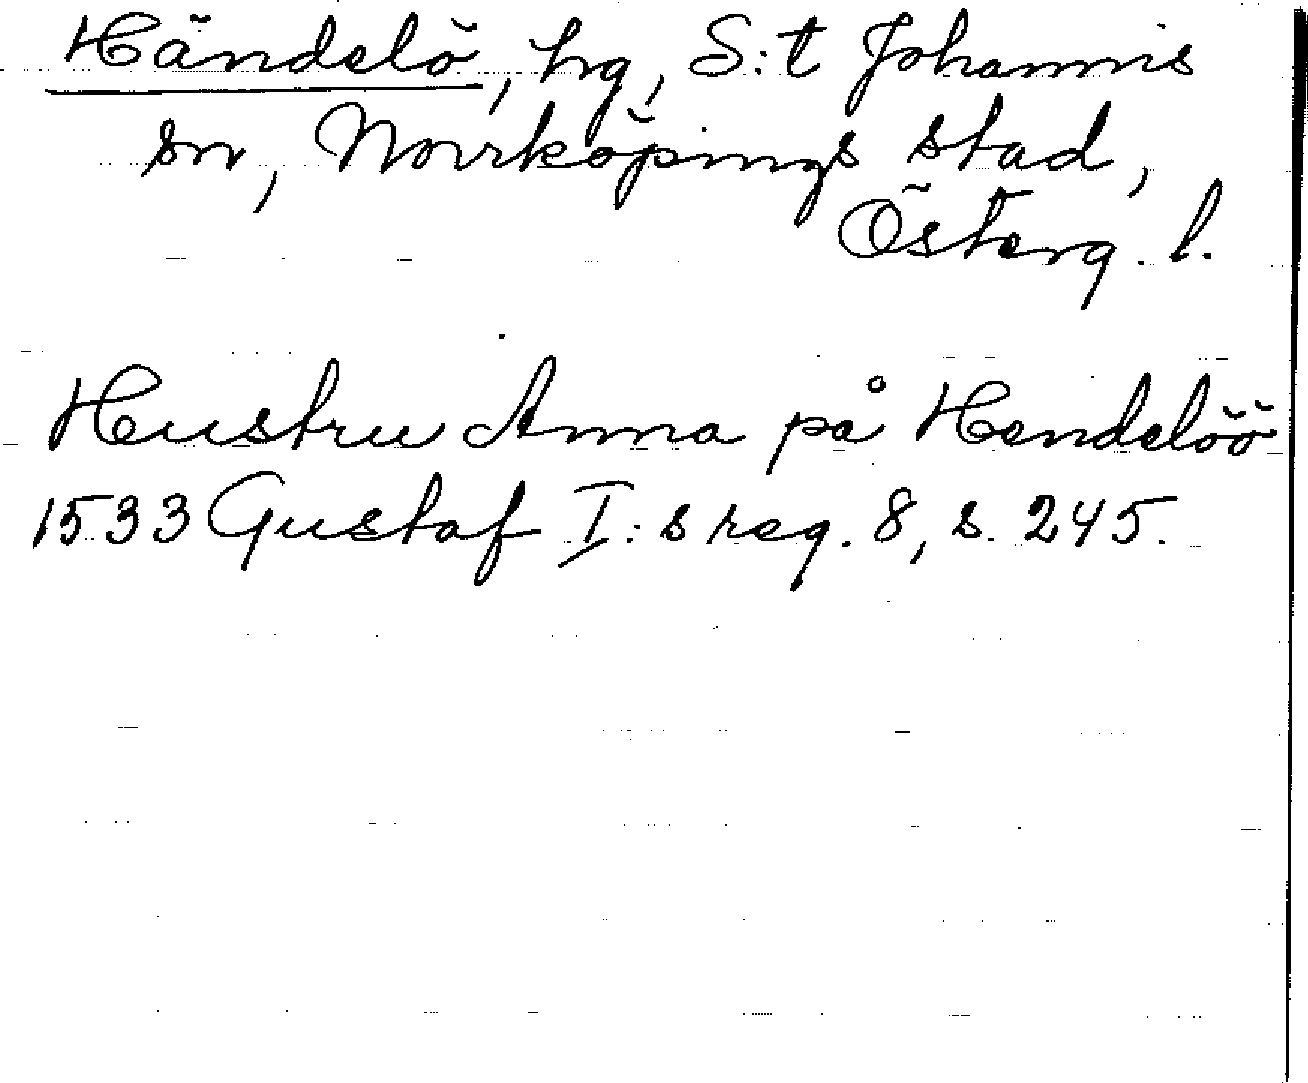 Händelö, hg, S:t Johannis
sn, Norrköpings stad,
Österg. l.
Hustru Anna på Hendelöö
1533 Gustaf I:s reg. 8, s. 245.